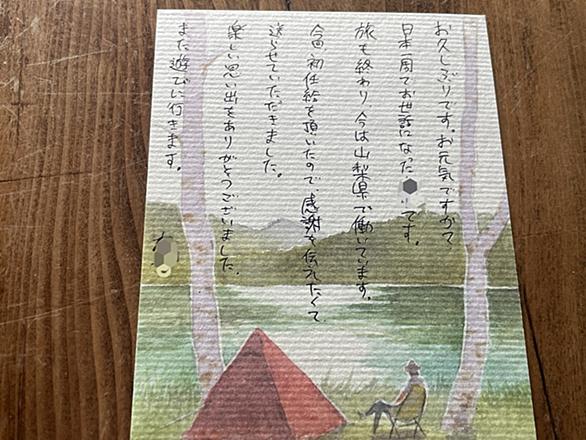 お久しぶりです。お元気ですか?
日本一周でお世話になったです。
旅も終わり、今は山梨県で働いています。
今回、初任給を頂いたので、感謝を伝えたくて
送らせていただきました。
楽しい思い出をありがとうございました。
また遊びに行きます。